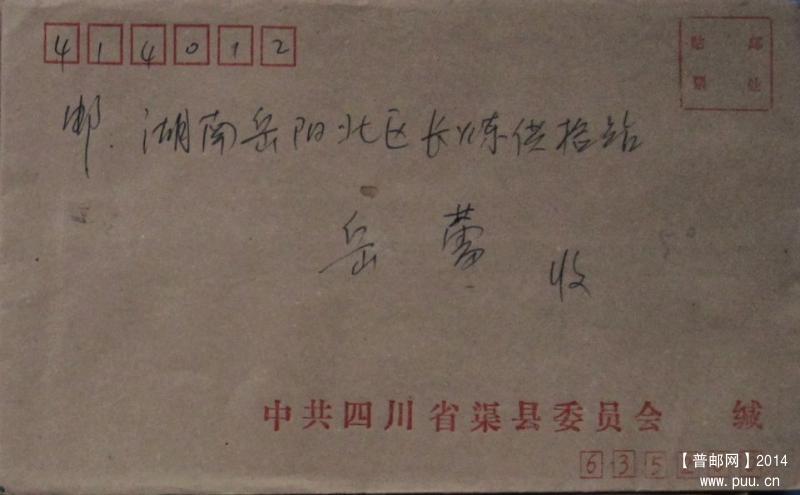 414012
贴邮
票处
邮. 湖南岳阳北区长炼供给站
岳 蕾 收
中共四川省渠县委员会 缄
635
【普邮网】2014
www.puu.cn